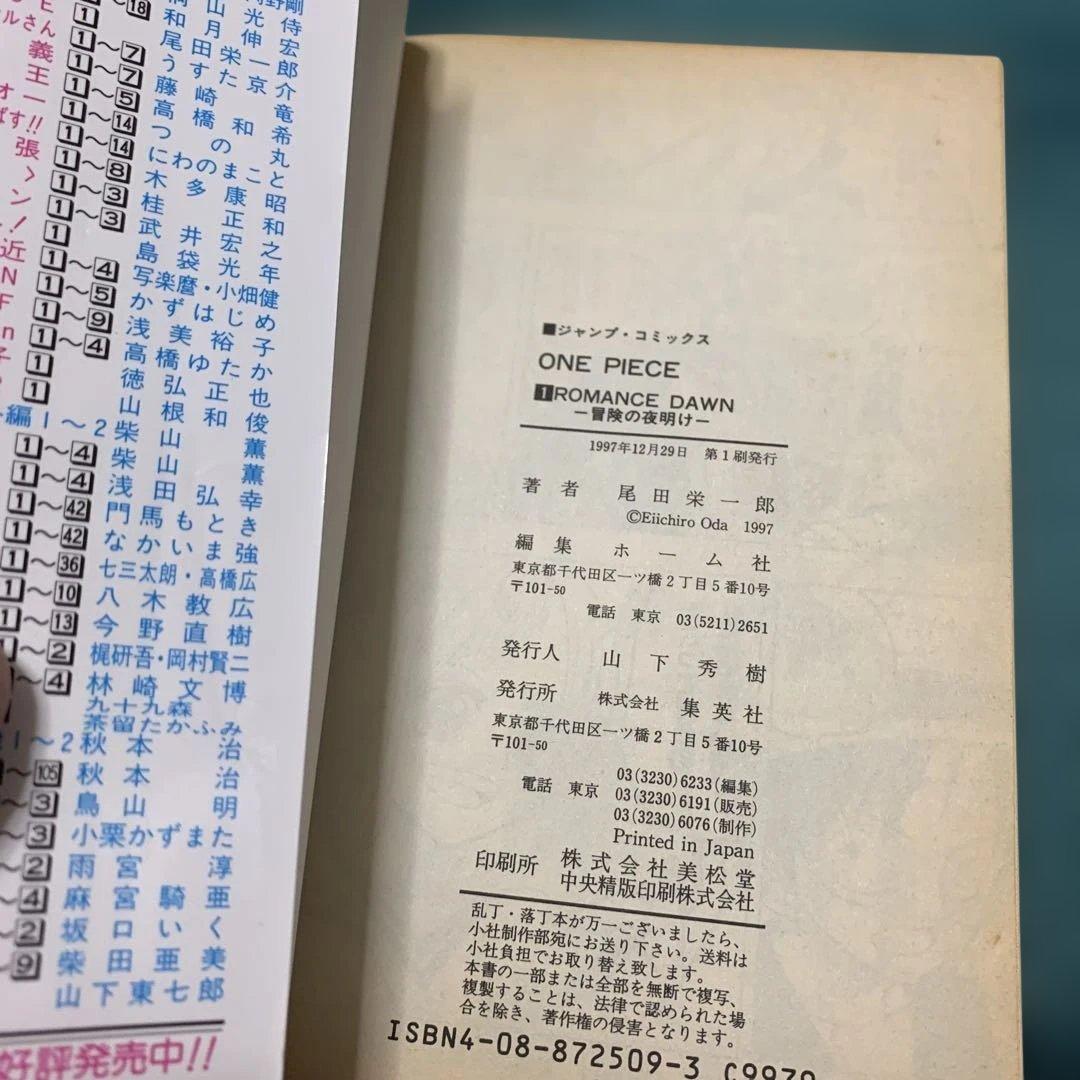 ■ジャンプ・コミックス
ONE PIECE
1ROMANCE DAWN
—冒険の夜明け—
1997年12月29日 第1刷発行
著者 尾田栄一郎
©Eiichiro Oda 1997
編集 ホーム社
東京都千代田区一ツ橋2丁目5番10号
〒101-50
電話 東京 03(5211)2651
発行人 山下秀樹
発行所 株式会社 集英社
東京都千代田区一ツ橋2丁目5番10号
〒101-50
03(3230)6233(編集)
電話 東京 03(3230)6191(販売)
03(3230)6076(制作)
Printed in Japan
印刷所 株式会社美松堂
中央精版印刷株式会社
乱丁・落丁本が万一ございましたら、
小社制作部宛にお送り下さい。送料は
小社負担でお取り替え致します。
本書の一部または全部を無断で複写、
複製することは、法律で認められた場
合を除き、著作権の侵害となります。
ISBN4-08-872509-3 C9979
にわのまこと
木多康昭
桂正和
武井宏之
島袋光年
写楽麿・小畑健
かずはじめ
浅美裕子
高橋ゆたか
徳弘正也
山根和俊
編1〜2 柴山薫
1〜4 柴山薫
1〜4 浅田弘幸
1〜42 門馬もとき
1〜42 なかいま強
1〜36 七三太朗・高橋広
1〜10 八木教広
1〜13 今野直樹
1〜2 梶研吾・岡村賢二
〜4 林崎文博
九十九森
茶留たかふみ
1〜2 秋本治
〜105 秋本治
〜3 鳥山明
〜3 小栗かずまた
〜2 雨宮淳
〜4 麻宮騎亜
〜2 坂口いく
〜9 柴田亜美
山下東七郎
好評発売中!!